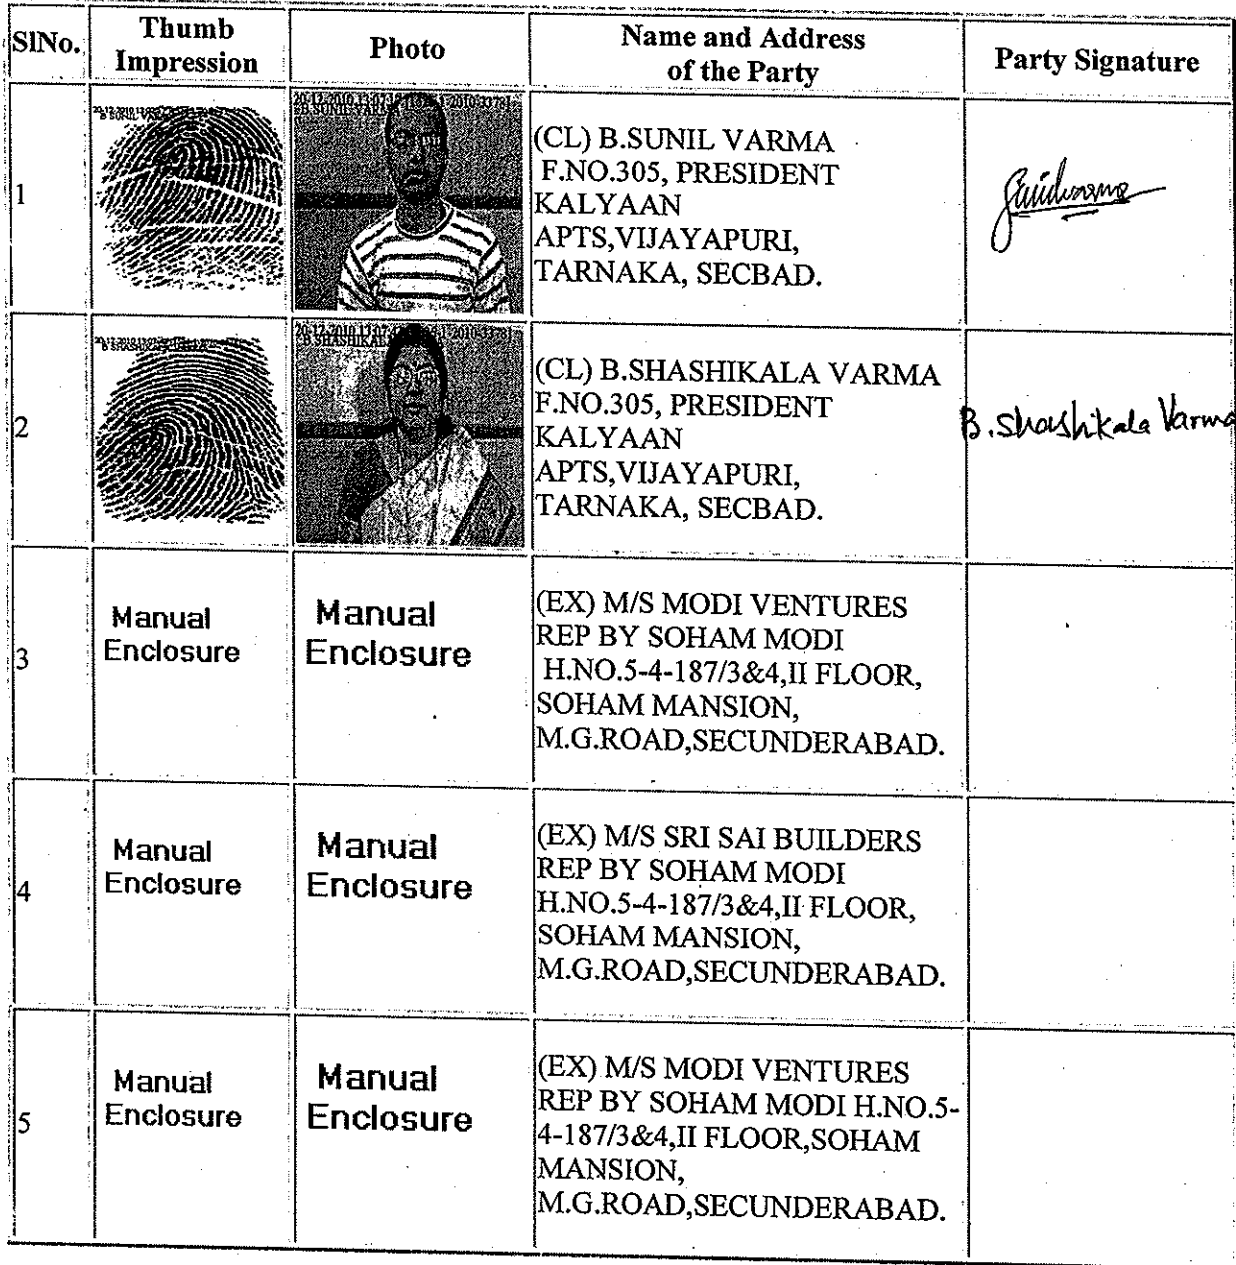 SlNo.
Thumb
Impression
Photo
Name and Address
of the Party
Party Signature
1
(CL) B.SUNIL VARMA
F.NO.305, PRESIDENT
KALYAAN
APTS,VIJAYAPURI,
TARNAKA, SECBAD.
2
(CL) B.SHASHIKALA VARMA
F.NO.305, PRESIDENT
KALYAAN
APTS,VIJAYAPURI,
TARNAKA, SECBAD.
B. Shashikala Varma
3
Manual
Enclosure
Manual
Enclosure
(EX) M/S MODI VENTURES
REP BY SOHAM MODI
H.NO.5-4-187/3&4,II FLOOR,
SOHAM MANSION,
M.G.ROAD,SECUNDERABAD.
4
Manual
Enclosure
Manual
Enclosure
(EX) M/S SRI SAI BUILDERS
REP BY SOHAM MODI
H.NO.5-4-187/3&4,II FLOOR,
SOHAM MANSION,
M.G.ROAD,SECUNDERABAD.
5
Manual
Enclosure
Manual
Enclosure
(EX) M/S MODI VENTURES
REP BY SOHAM MODI H.NO.5-
4-187/3&4,II FLOOR,SOHAM
MANSION,
M.G.ROAD,SECUNDERABAD.